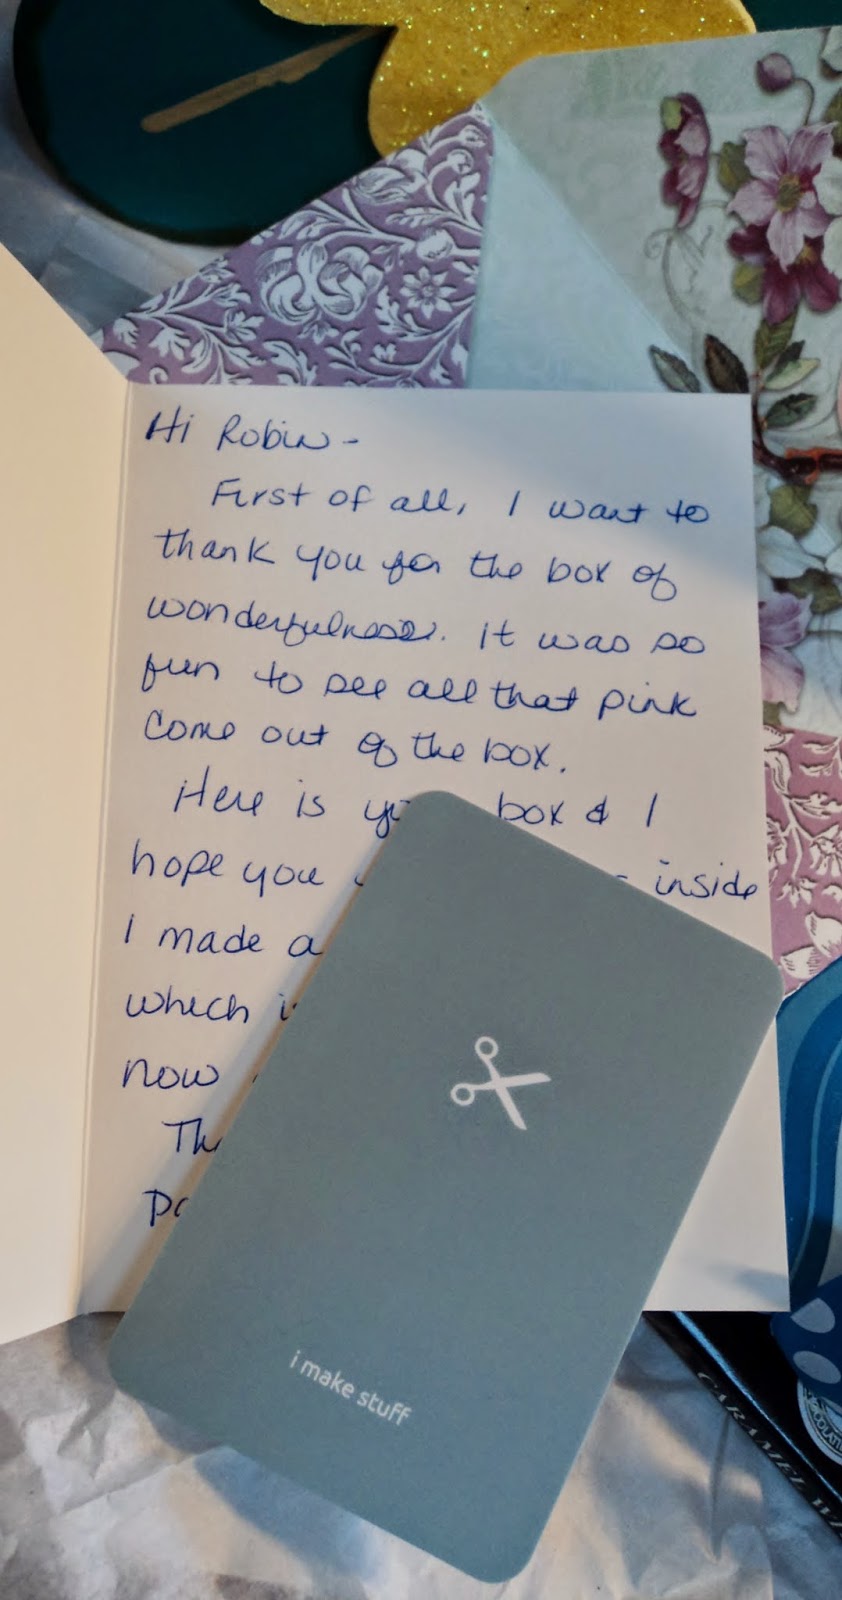 Hi Robin -
First of all, I want to
thank you for the box of
wonderfulness. It was so
fun to see all that pink
come out of the box.
Here is box & I
hope you inside
I made a
which
now
i make stuff
CARAMEL